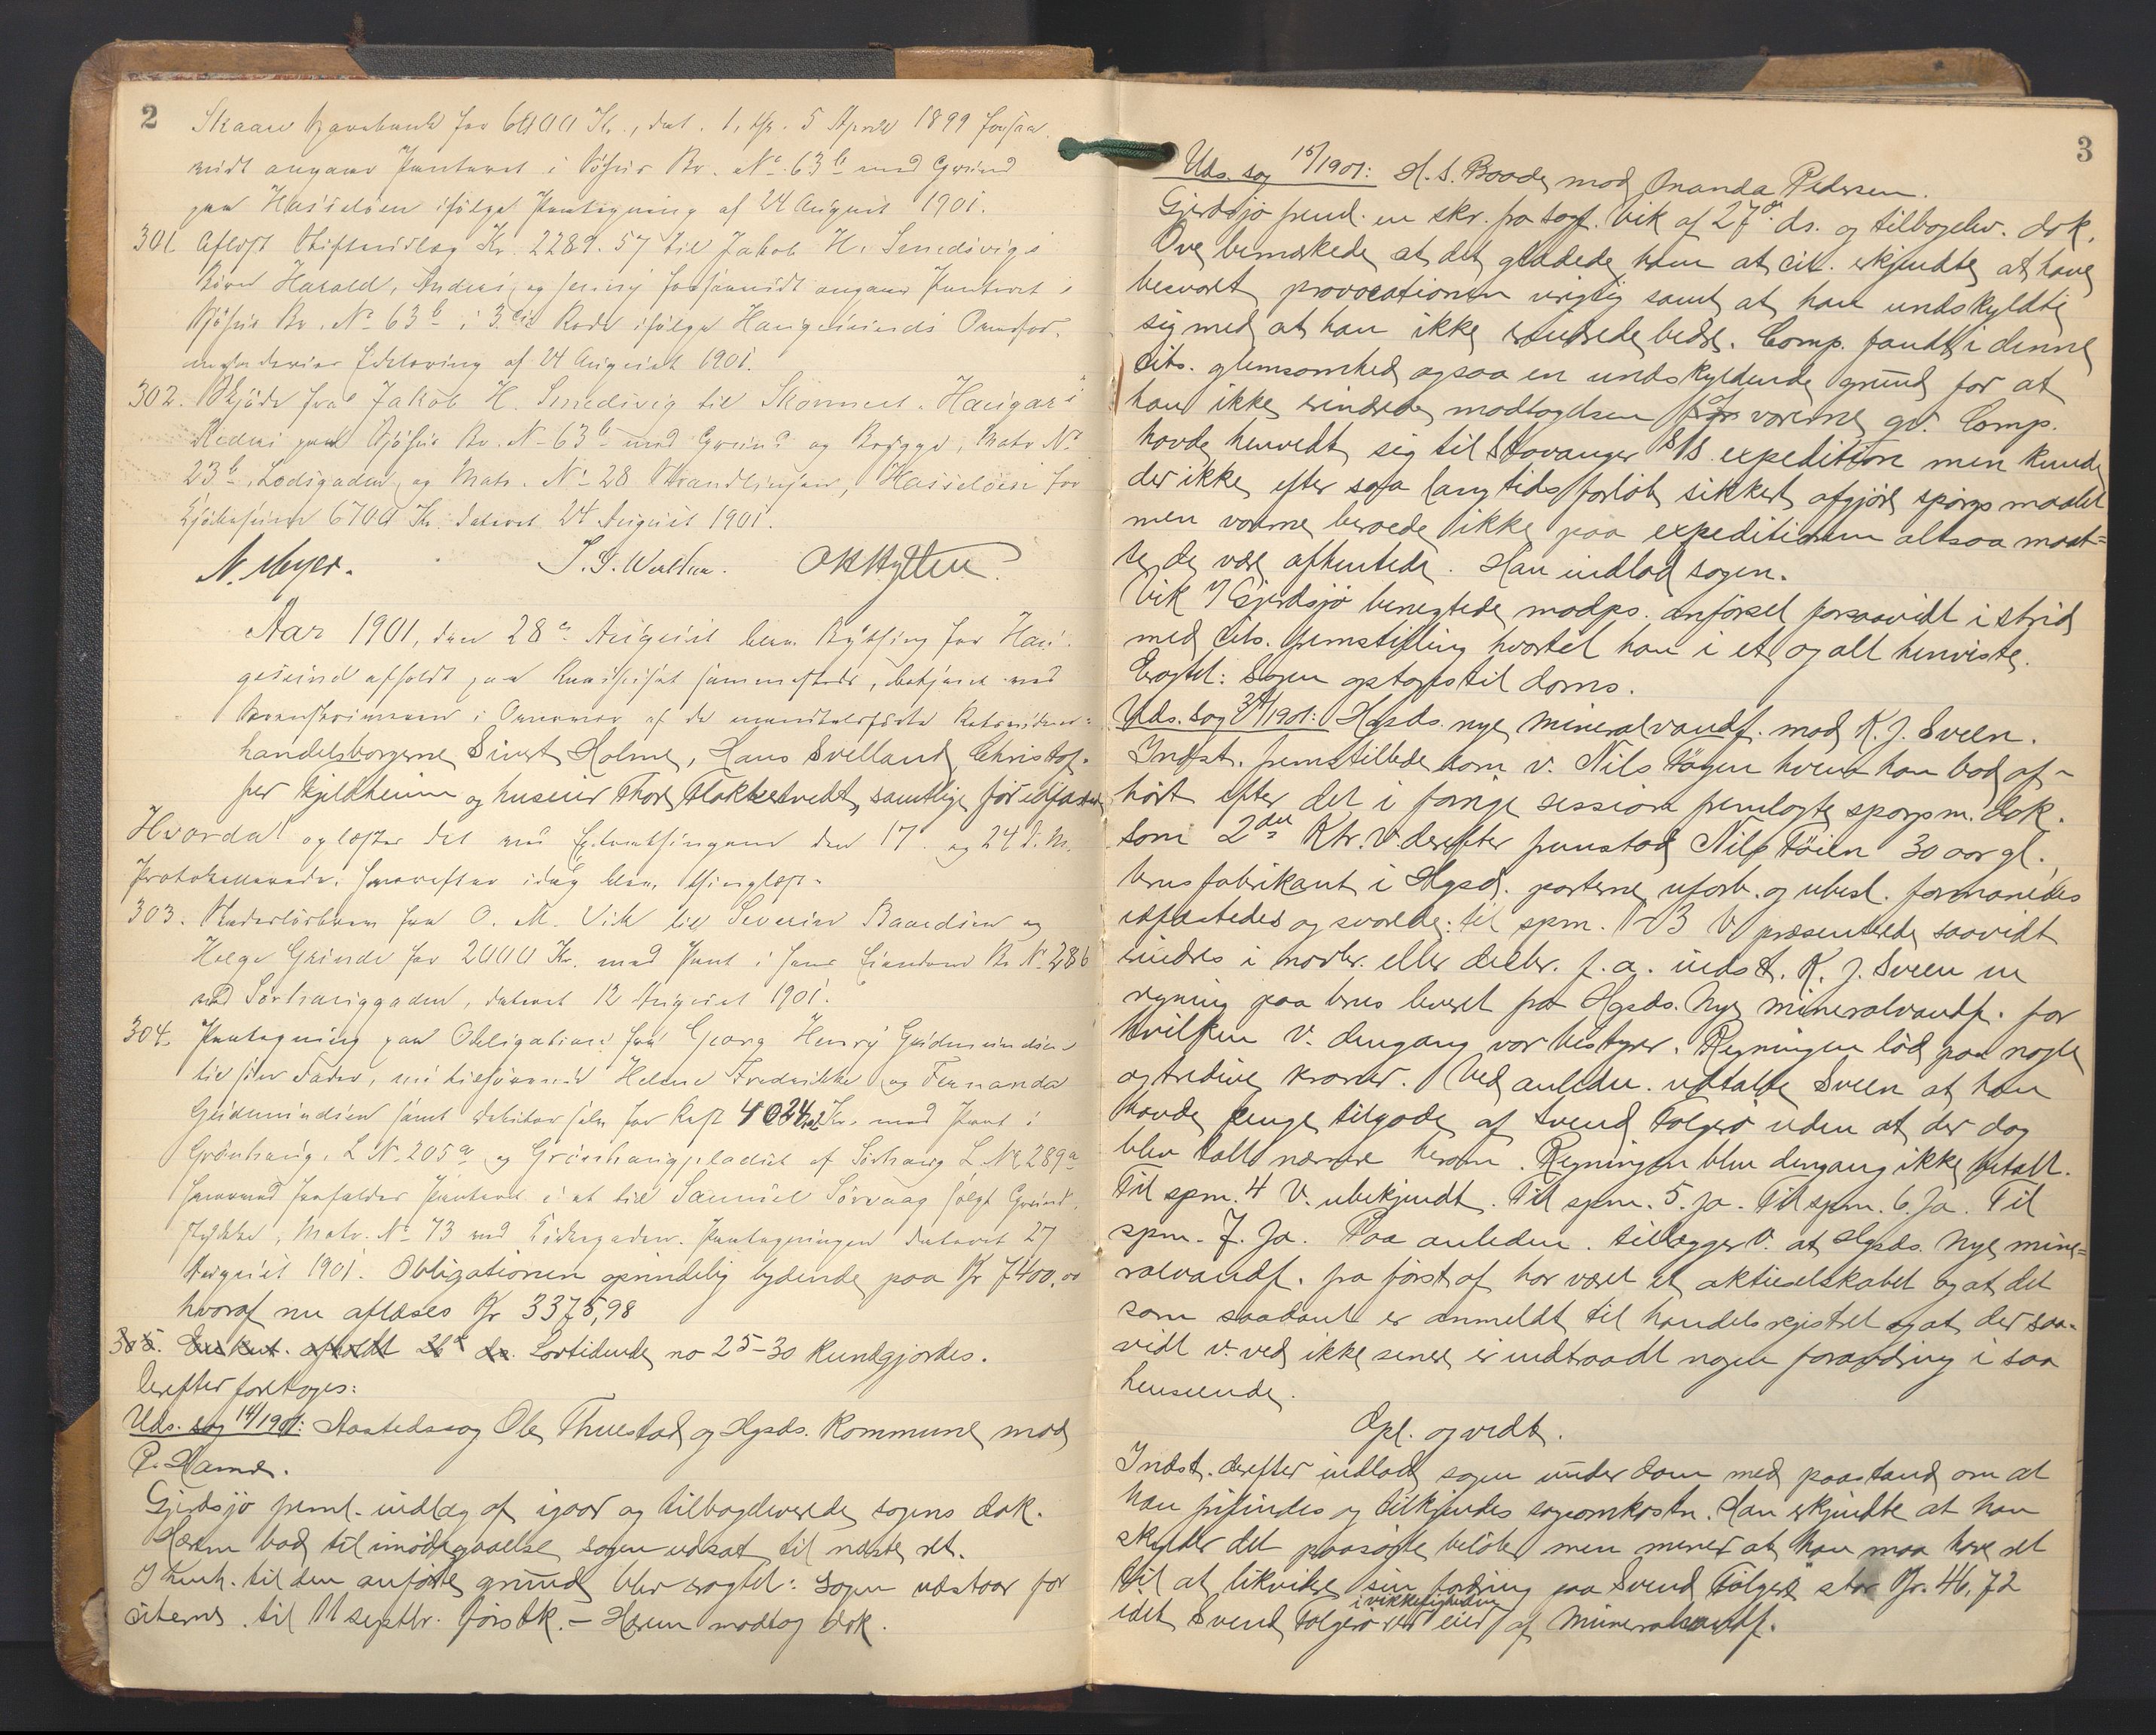 2
Skaare Sparebank for 6000 Kr., dat. 1, thgl. 5 April 1899 forsaa
vidt angaar Panteret i Söhus Br. No 63 b med Grund
paa Hasseløen ifölge Paategning af 24 August 1901.
301. Aflyst Skiftendlæg Kr. 2289.57 til Jakob H. Smedsvigs
Börn Harald, Andreas og Jenny forsaavidt angaar Panteret i
Sjöhus Br. No 63 b i 3die Rode ifölge Haugesunds Overfor-
mynderies Erklæring af 24 August 1901.
302. Skjöde fra Jakob H. Smedsvig til Skonnert "Haugar"s
Rederi paa Sjöhus Br. No 63 b med Grund og Brygge, Matr No
23 b, Lodsgaden, og Matr. No 28 Strandlinjen, Hasseløen for
Kjöbesum 6700 Kr. dateret 24 August 1901.
N. Meyer. J. G. Wulster. O K Hytten.
Aar 1901, den 28de August blev Bything for Hau-
gesund afholdt paa Raadhuset sammesteds, betjent med
Sorenskriveren i Overvær af de mandtalsförte Retsvidner:
handelsborgerne Sivert Holme, Hans Svelland, Christof-
fer Kjeldheim og huseier Thore Flakketvedt, samtlige för edfæstet
Hvorda oplæstes det ved Extrathingene den 17. og 24 d. M.
Protokollerede. Hvorefter idag blev thinglæst.
303. Skadeslösbrev fra O. M. Vik til Severin Baardsen og
Helge Grinde for 2000 Kr. med Pant i hans Eiendom Br No 286
ved Sörhauggaden, dateret 12 August 1901.
304. Paategning paa Obligation fra Georg Henry Gudmundsen
til sin Fader, nu tilhörende Helene Fredrikke og Fernanda
Gudmundsen samt debitor selv for Rest 4024,02 Kr. med Pant i
Grönhaug, L No 205 a og Grönhaugpladset af Sörhaug L. No 289 a
hvorved frafaldes Panteret i et til Samuel Sörvaag solgt Grund-
stykke, Matr. No 73 ved Tidesgaden. Paategningen dateret 27
August 1901. Obligationen oprindelig lydende paa Kr 7400,00
hvoraf nu aflæses Kr 3375,98
305. Lovtidende no 25-30 kundgjordes.
Derefter foretoges:
Uds. sag 14/1901: Aastedssag Ole Thuestad og Hgsds. Kommune mod
P. Hamre.
Gjerdsjø freml. indlæg af igaar og tilbageleverede sagens dok.
Hærem bad til imødegaaelse sagen udsat til næste ret.
I henh. til den anførte grund blev eragtet: Sagen udstaar for
citerne til 11 septbr. førstk. – Hærem modtog dok.
3
Uds. sag 15/1901: H. S. Baade mod Amanda Pedersen.
Gjerdsjø freml. en skr. fra sagf. Vik af 27de ds. og tilbagelev. dok.
Ove bemærkede at det glædede ham at cit. erkjendte at have
besvaret provocationen urigtig samt at han undskyldte
sig med at han ikke erindrede bedre. Comp. fandt i denne
cits. glemsomhed ogsaa en undskyldende grund for at
han ikke erindrede modtagelsen af varerne gr. Comp.
havde henvendt sig til Stavanger S/S expedition men kunde
der ikke efter saa lang tids forløb sikkert afgjøre spørgsmaalet
men varerne beroede ikke paa expeditionen altsaa maat-
te de være afhentede. Han indlod sagen.
Vik v/ Gjerdsjø benegtede modps. anførsel forsaavidt i strid
med cits. fremstilling hvortil han i et og alt henviste.
Eragtet: Sagen optages til doms.
Uds. sag 34/1901: Hgsds. nye mineralvandf. mod K. J. Sveen.
Indst. fremstillede som v. Nils Tøgen hvem han bad af-
hørt efter det i forrige session fremlagte spørgsm. dok.
Som 2det Ktr. V. derefter fremstod Nils Føien 30 aar gl.
brusfabrikant i Hgsd. parterne uforb. og ubesl. formanedes
edfæstedes og svarede: til spm. 1-3 V præsenterede saavidt
erindres i novbr. eller decbr. f. a. indst. K. J. Sveen en
regning paa brus leveret fra Hgsds. Nye mineralvandf. for
hvilken V. dengang var bestyrer. Regningen lød paa nogle
og tredive kroner. Ved anledn. udtalte Sveen at han
havde penge tilgode af Svend Følgerø uden at der dog
blev talt nærmere herom. Regningen blev dengang ikke betalt.
Til spm. 4 V. ubekjendt. Til spm. 5. Ja. Til spm. 6. Ja. Til
spm. 7. Ja. Paa anledn. tillægger V. at Hgsds. Nye mine-
ralvandf. fra først af har været et aktieselskabet og at det
som saadant er anmeldt til handelsregistret og at der saa-
vidt v. ved ikke senere er indtraadt nogen forandring i saa
henseende.
Opl. og vedt.
Indst. derefter indlod sagen under dom med paastand om at
han frifindes og tilkjendes sagsomkostn. Han erkjendte at han
skylder det paasøgte beløb men mener at han maa have ret
til at likvidere sin fordring paa Svend Følgerø stor Kr. 46,72
idet Svend Følgerø i virkeligheden er eier af Mineralvandf.